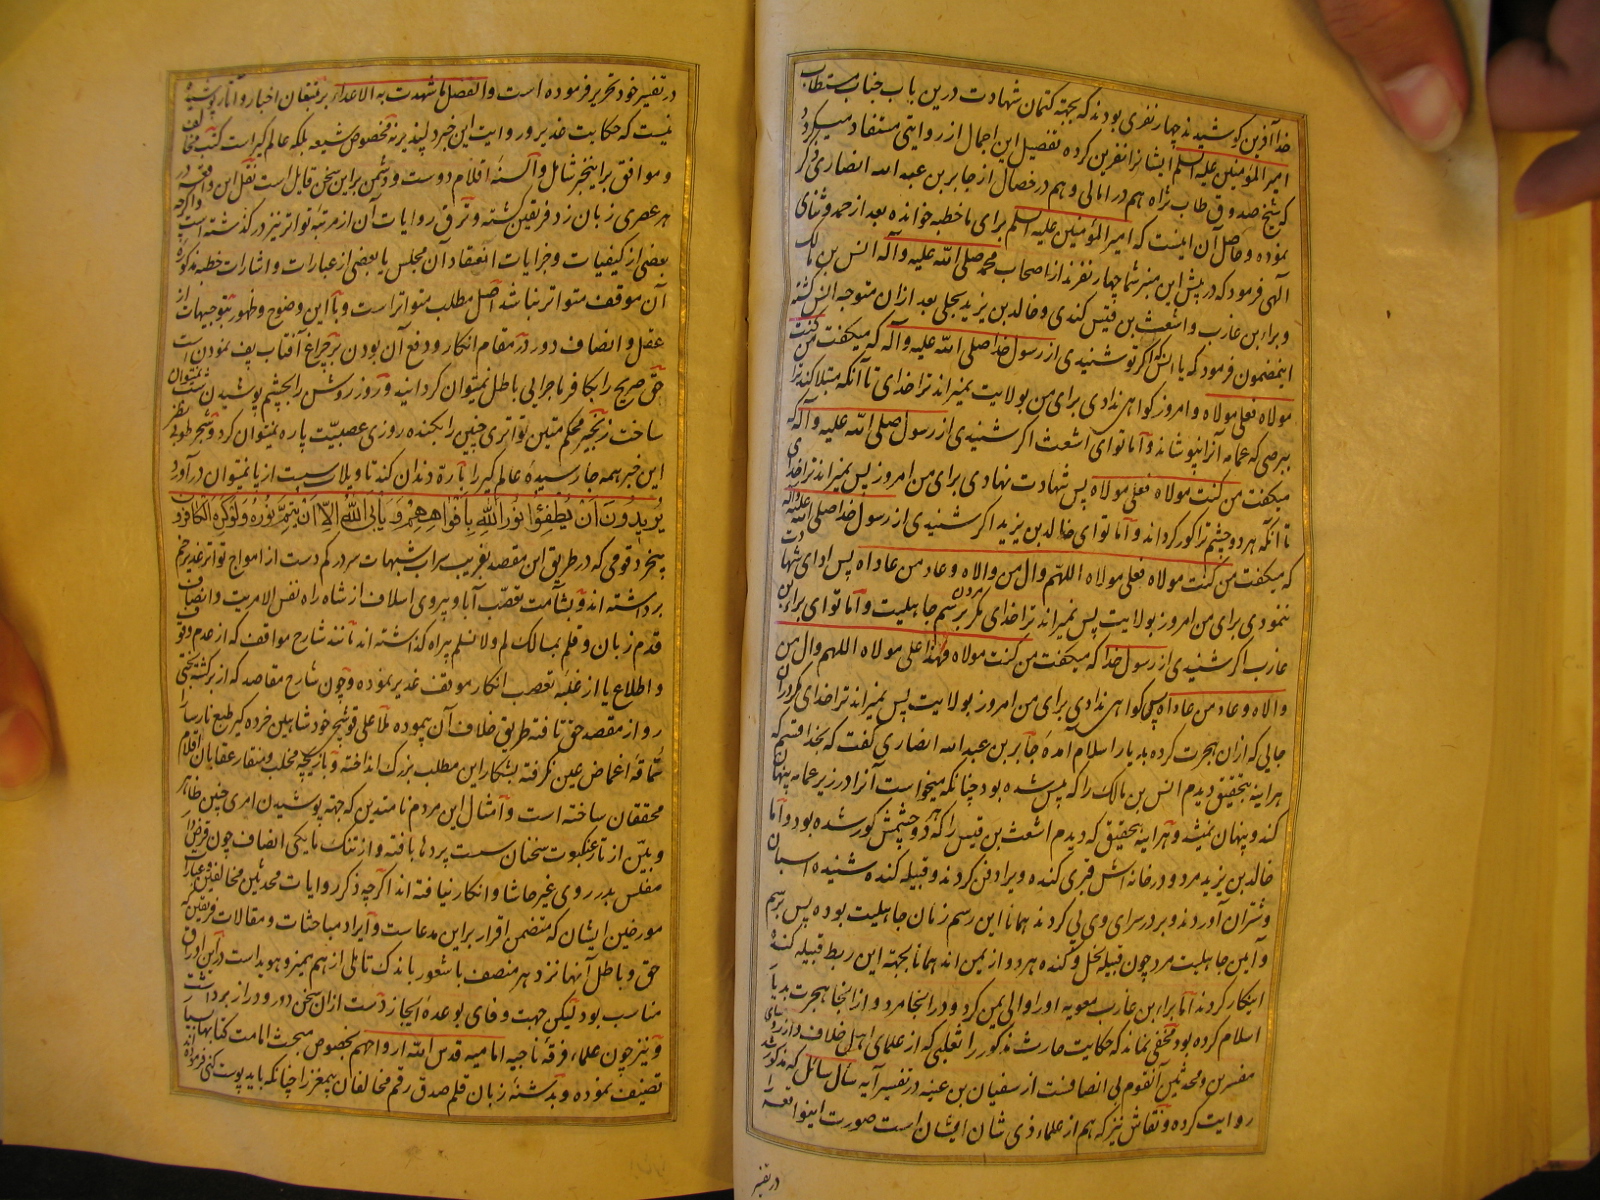 خدا آفرین کوشیدند چهار نفری بودند که بجهة کتمان شهادت درین باب جناب مستطاب
امیر المؤمنین علیه السلم ایشانرا نفرین کرده تفصیل این اجمال از روایتی مستفاد میکردد
که شیخ صدوق طاب ثراه هم در امالی و هم در خصال از جابر بن عبد الله انصاری ذکر
نموده و حاصل آن اینست که امیر المؤمنین علیه السلم برای ما خطبه خوانده بعد از حمد و ثنای
الهی فرمود که در پیش این منبر شما چهار نفرند از اصحاب محمد صلی الله علیه وآله انس بن مالک
و براء بن عازب و اشعث بن قیس کندی و خالد بن یزید بجلی بعد ازان متوجه انس کشته
اینمضمون فرمود که یا انس که اگر تو شنیدی از رسول خدا صلی الله علیه وآله که میکفت من کنت
مولاه فعلی مولاه و امروز کواهی ندادی برای من بولایت نمیراند ترا خدای تا آنکه مبتلا کند ترا
ببرصی که عمامه آنرا نپوشاند و اما تو ای اشعث اگر شنیدی از رسول صلی الله علیه وآله که
میکفت من کنت مولاه فعلی مولاه پس شهادت نهادی برای من امروز پس نمیراند ترا خدای
تا آنکه هر دو چشم ترا کور کرداند و اما تو ای خالد بن یزید اگر شنیدی از رسول خدا صلی الله علیه وآله
که میکفت من کنت مولاه فعلی مولاه اللهم وال من والاه و عاد من عاداه پس ادای شهادت
ننمودی برای من امروز بولایت پس نمیراند ترا خدای مکر برسم مردن جاهلیت و اما تو ای براء بن
عازب اگر شنیدی از رسول خدا که میکفت من کنت مولاه فهذا علی مولاه اللهم وال من
والاه و عاد من عاداه پس کواهی ندادی برای من امروز بولایت پس نمیراند ترا خدای مکر در آن
جایی که ازان هجرت کرده بدیار اسلام آمدهٔ جابر بن عبد الله انصاری کفت که بخدا قسم که
هر اینه بتحقیق دیدم انس بن مالک را که پیس شده بود چنانکه میخواست آنرا در زیر عمامه پنهان
کند و پنهان نمیشد و هر اینه بتحقیق که دیدم اشعث بن قیس را که هر دو چشمش کور شده بود و اما
خالد بن یزید مرد و در خانه اش قبری کنده و برا دفن کردند و قبیله کنده شنیده اسبان
و شتران آوردند و بر در سرای وی پی کردند همانا این رسم زمان جاهلیت بوده پس برسم
و آیین جاهلیت مرد چون قبیله بجل و کنده هر دو از یمن اند همانا بجهته این ربط قبیله کنده
اینکار کردند اما براء بن عازب معویه او را والی یمن کرد و در آنجا مرد و از انجا هجرت بدیار
اسلام کرده بود مخفی نماند که حکایت حارث مذکور را ثعلبی که از علمای اهل خلاف و از رؤسای
مفسرین و محدثین آنقوم بی انصافست از سفیان بن عیینه در تفسیر آیه سأل سائل که مذکور شد
روایت کرده و نقاش نیز که هم از علماء ذی شان ایشان است صورت اینواقعه را
در تفسیر
در تفسیر خود تحریر فرموده است والفضل ما شهدت به الاعداء بر متتبعان اخبار و آثار پوشیده
نیست که حکایت غدیر و روایت این خبر دلپذیر نه مخصوص شیعه بلکه عالمکیر است کتب مخالف
و موافق بر اینخبر شامل و السنهٔ اقلام دوست و دشمن بر این سخن قایل است نقل این واقعه در
هر عصری زبان زد فریقین کشته و ترقی روایات آن از مرتبهٔ تواتر نیز در کذشته است و اکر چه
بعضی از کیفیات و جزایات انعقاد آن مجلس یا بعضی از عبارات و اشارات خطبه مذکوره
آن موقف متواتر نباشد اصل مطلب متواتر است و با این وضوح و ظهور بتوجیهات از
عقل و انصاف دور در مقام انکار و دفع آن بودن بر چراغ آفتاب پف نمودن است
حق صریح را بکافر ماجرایی باطل نمیتوان کردانید و روز روشن را بچشم پوشیدن شب نمیتوان
ساخت زنجیر محکم متین تواتری چنین را بکنده روزی عصبیت پاره نمیتوان کرد و شجر طوبی نظیر
این خبر همه جا رسیدهٔ عالمکیر را بارهٔ دندان کند تاویلات سست از پا نمیتوان در آورد
یُرِیدُونَ أَنْ یُطْفِئُوا نُورَ اللهِ بِأَفْوَاهِهِمْ وَیَأْبَى اللهُ إِلَّا أَنْ یُتِمَّ نُورَهُ وَلَوْ كَرِهَ الْكَافِرُونَ
بیخرد قومی که در طریق این مقصد بفریب سراب شبهات سر در کم دست از امواج تواتر غدیر خم
برداشته اند و بشآمت تعصب آبا و پیروی اسلاف از شاه راه نفس الامریت و انصاف
قدم زبان و قلم بمسالک لم و لانسلم بیراه کذاشته اند مانند شارح مواقف که از عدم وقوف
و اطلاع یا از غلبهٔ تعصب انکار موقف غدیر نموده و چون شارح مقاصد که از برکشته بختی
رو از مقصد حق تافته طریق خلاف آن پیموده ملا علی قوشچی خود شاهین خرده کیر طبع نارسا را
محققان ساخته است و امثال این مردم نامتدین که جهته پوشیدن امری چنین ظاهر
و بیّن از تار عنکبوت سخنان سست پردها بافته و از تنک مایکی انصاف چون قرض دار
مفلس بدر روی غیر حاشا و انکار نیافته اند اکر چه ذکر روایات محدثین مخالفین و عبارات
مورخین ایشان که متضمن اقرار بر این مدعاست و ایراد مباحثات و مقالات فریقین که
حق و باطل آنها نزد هر منصف با شعور باندک تاملی از هم ممیز و هویداست درین اوراق
مناسب بود لیکن جهت وفای بوعدهٔ ایجاز دست ازان سخن دور و دراز برداشت
و نیز چون علماء فرقه ناجیه امامیه قدس الله ارواحهم بخصوص مبحث امامت کتابها بسیار
تصنیف نموده و بدشنهٔ زبان قلم صدق رقم مخالفان بیمغز را چنانکه باید پوست کنی فرموده اند